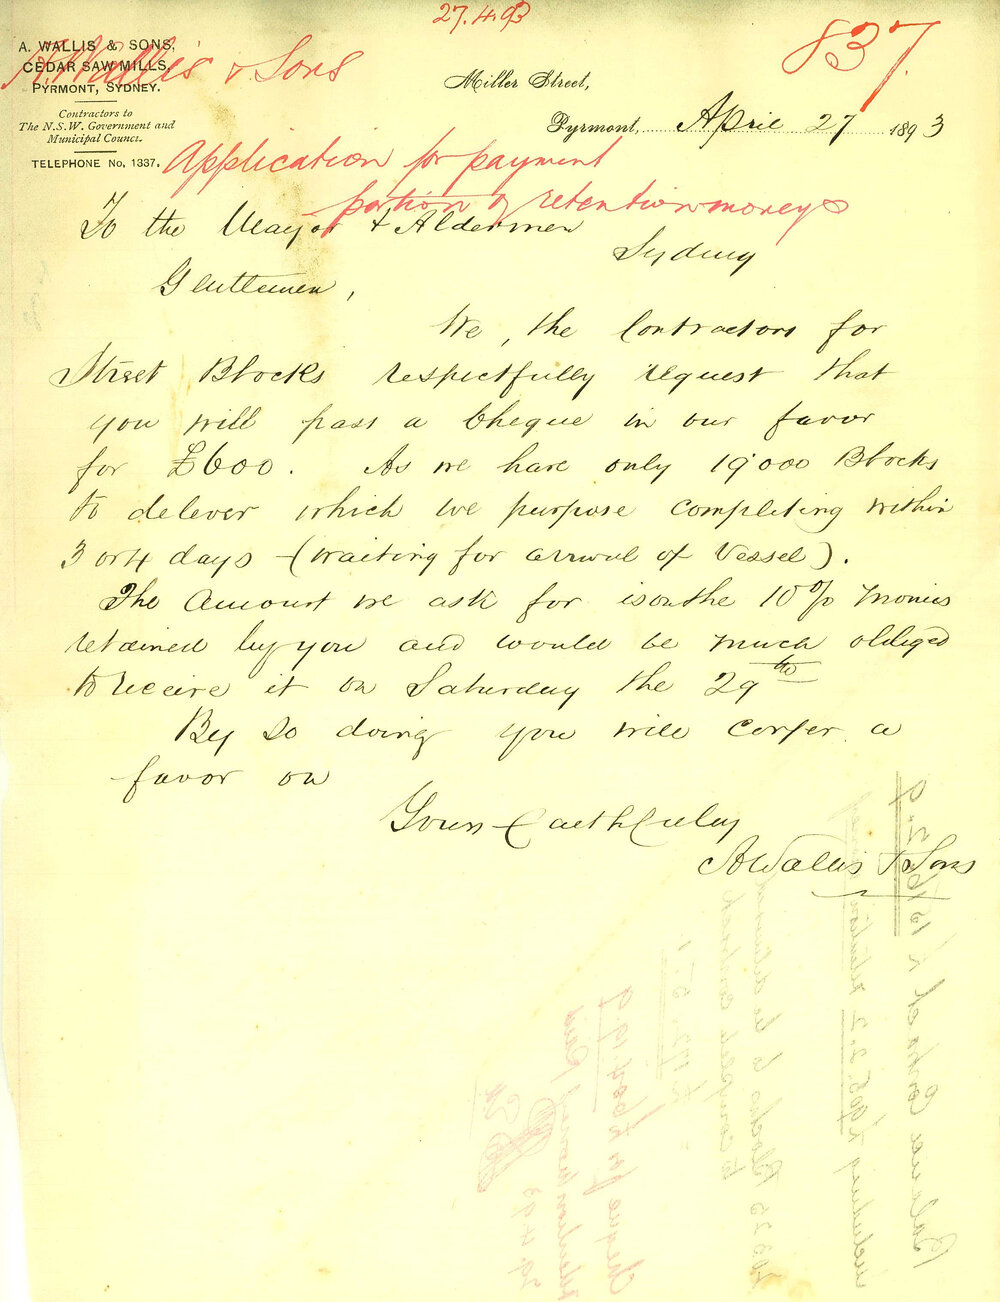 27.4.93
837
A. WALLIS & SONS,
CEDAR SAW MILLS,
PYRMONT, SYDNEY.
Contractors to
The N.S.W. Government and
Municipal Council.
TELEPHONE No, 1337.
A. Wallis & Sons
Miller Street,
Pyrmont, April 27 1893
Application for payment
portion of retention moneys
To the Mayor & Aldermen
Sydney
Gentlemen,
We, the Contractors for
Street Blocks respectfully request that
you will pass a Cheque in our favor
for £600. As we have only 19000 Blocks
to delever which we purpose completing within
3 or 4 days (waiting for arrival of Vessel).
The Amount we ask for is on the 10% monies
retained by you and would be much obliged
to receive it on Saturday the 29th
By so doing you will confer a
favor on
Yours faithfully
A Wallis & Sons
Balance Contract £
including £605.2.2 retention
Blocks to be delivered
to complete contract
Cheque for £604.19.9
retention money paid
29.4.93